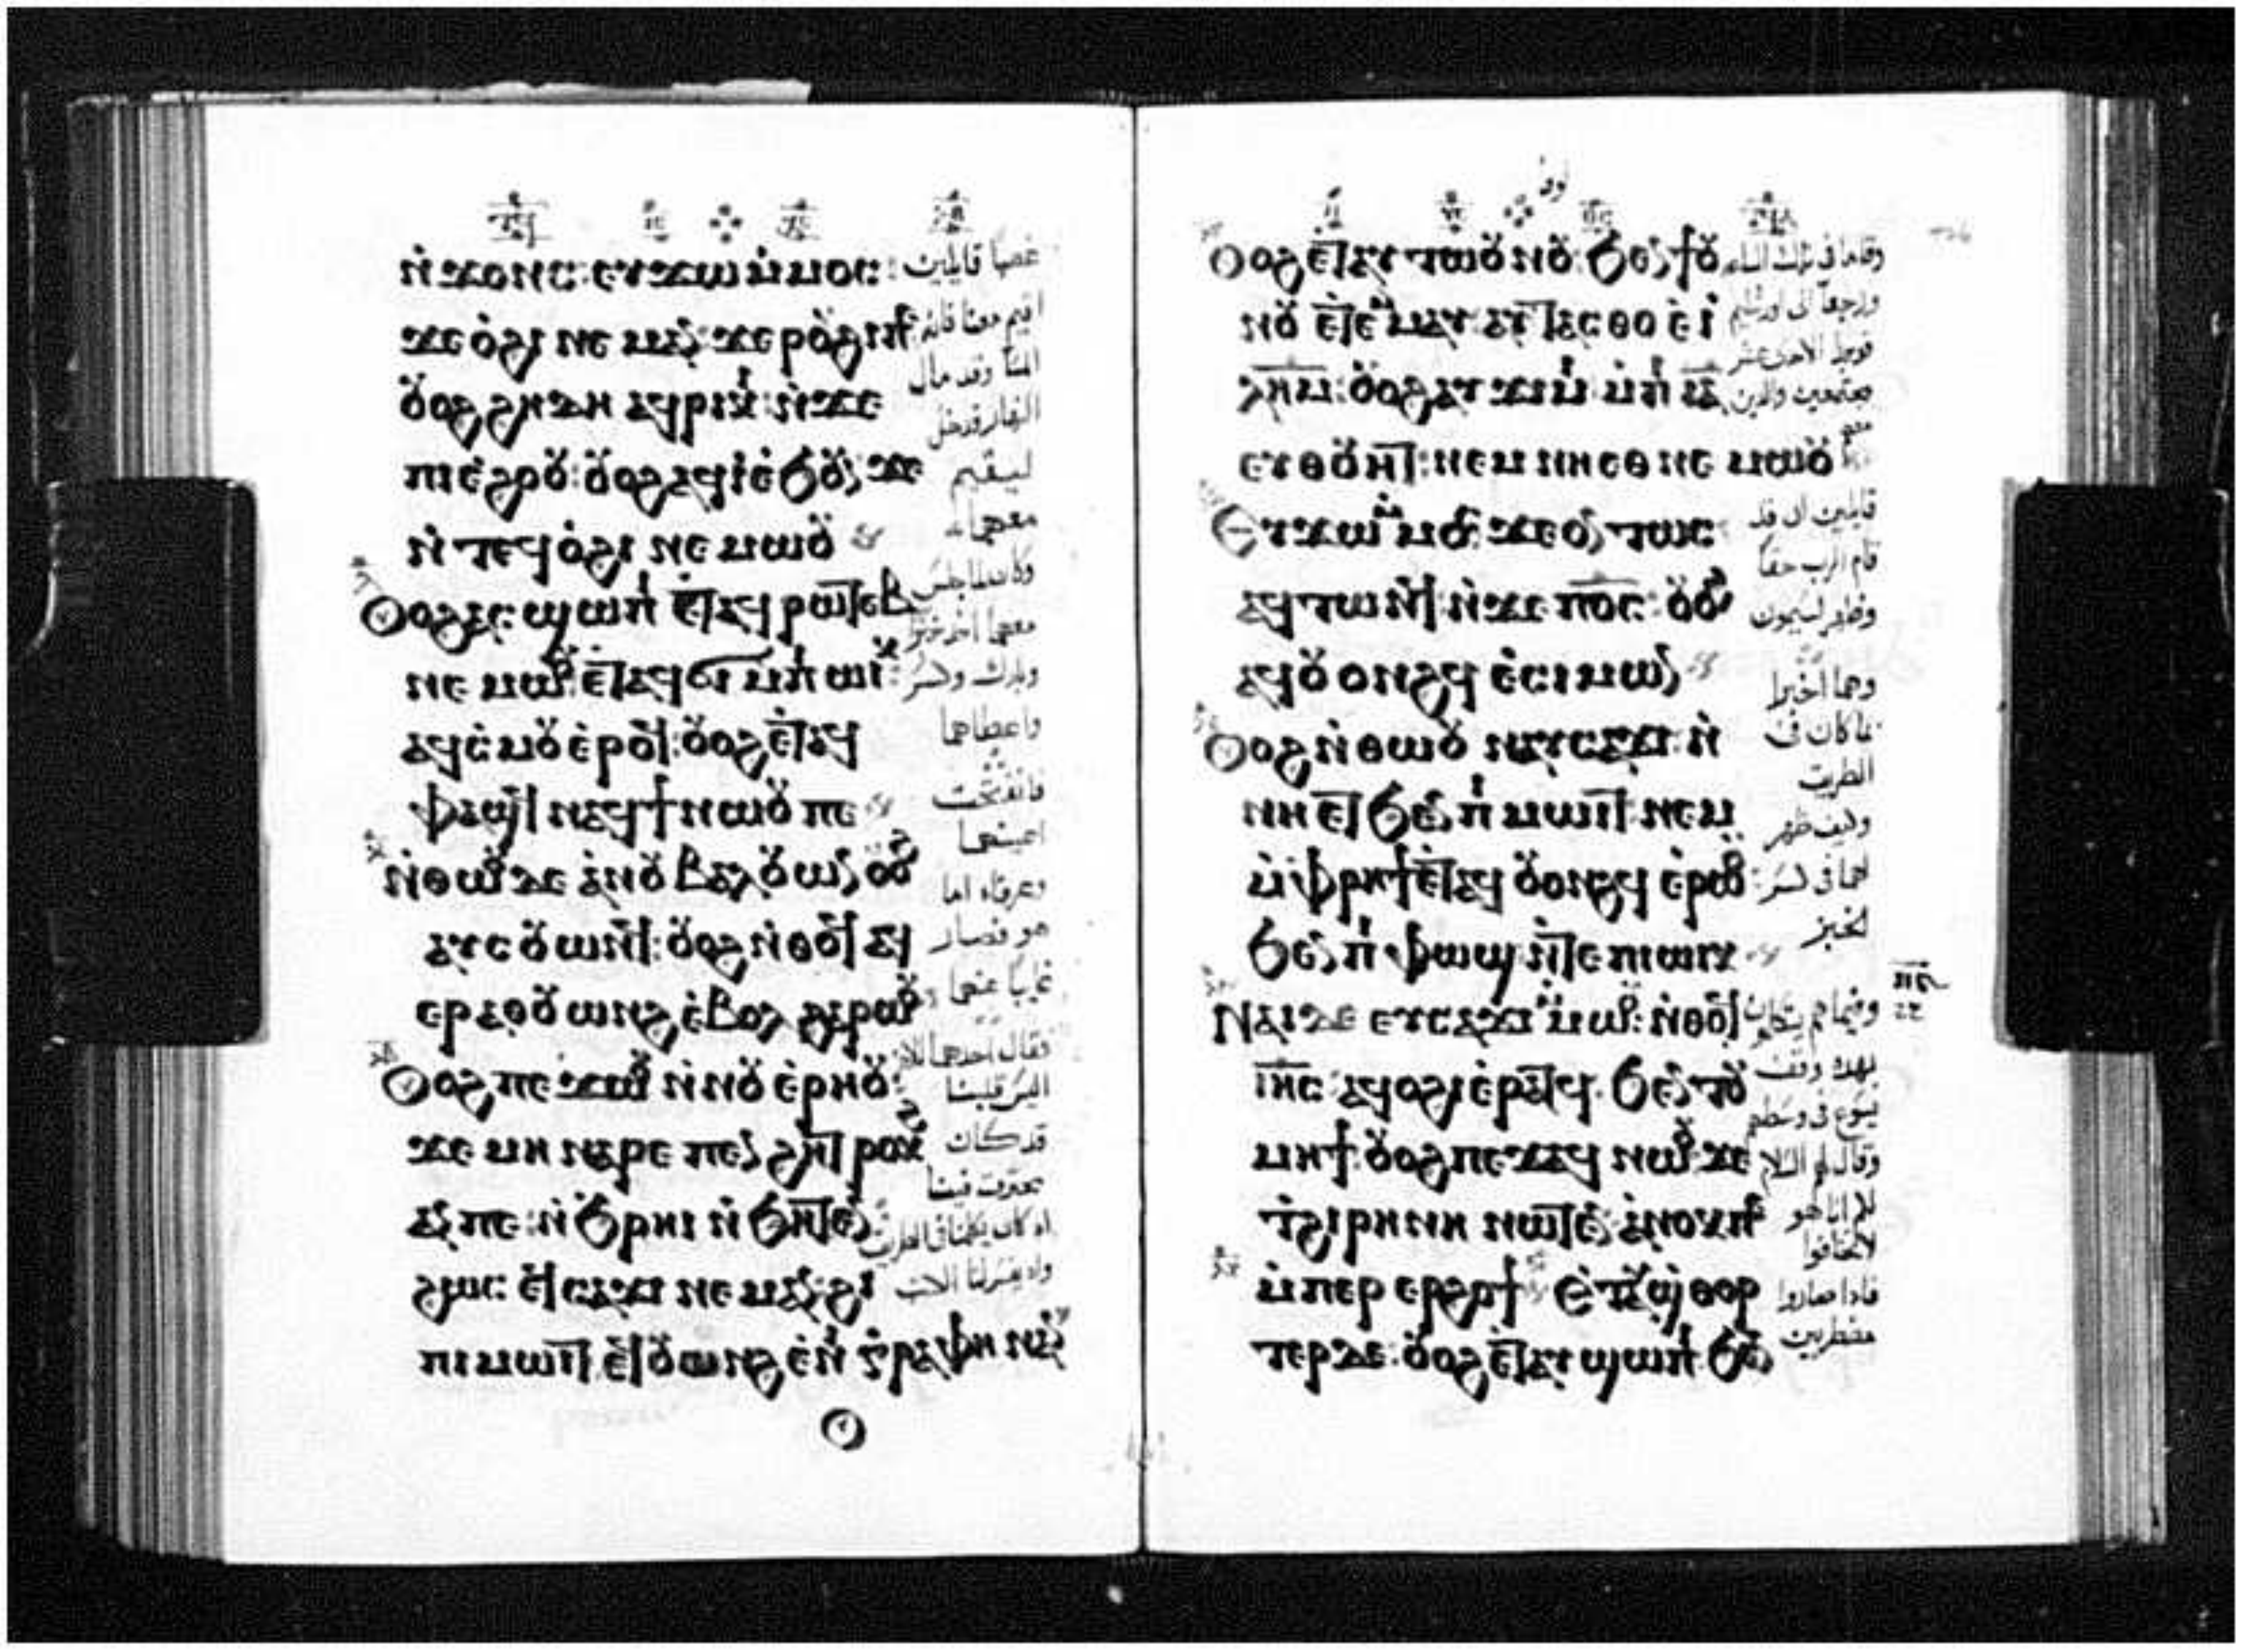 ⲛ̀ϫⲟⲛⲥ: ⲉⲩϫⲱ ⲙ̀ⲙⲟⲥ:
ϫⲉ ⲟ̀ϩⲓ ⲛⲉⲙⲁⲛ ϫⲉ ⲣⲟⲩϩⲓ
ⲟⲩⲟϩ ϩⲏⲇⲏ ⲁϥⲣⲓⲕⲓ ⲛ̀ϫⲉ
ⲡⲓⲉ̀ϩⲟⲟⲩ: ⲟⲩⲟϩ ⲁϥⲓ̀ ⲉ̀ϧⲟⲩⲛ ϫⲉ
ⲛ̀ⲧⲉϥⲟ̀ϩⲓ ⲛⲉⲙⲱⲟⲩ
ⲟⲩⲟϩ ⲁⲥϣⲱⲡⲓ ⲉ̀ⲧⲁϥⲣⲱⲧⲉⲃ
ⲛⲉⲙⲱⲟⲩ: ⲉ̀ⲧⲁϥϭⲓ ⲙ̀ⲡⲓⲱⲓⲕ
ⲁϥⲥ̀ⲙⲟⲩ ⲉ̀ⲣⲟϥ: ⲟⲩⲟϩ ⲉ̀ⲧⲁϥ
ⲫⲁϣϥ ⲛⲁϥϯ ⲛⲱⲟⲩ ⲡⲉ
ⲛ̀ⲑⲱⲟⲩ ⲇⲉ ⲁ̀ⲛⲟⲩⲃⲁⲗ ⲟⲩⲱⲛ ⲟⲩⲟϩ
ⲁⲩⲥⲟⲩⲱⲛϥ: ⲟⲩⲟϩ ⲛ̀ⲑⲟϥ ⲁϥ
ⲉⲣⲁⲑⲟⲩⲱⲛϩ ⲉ̀ⲃⲟⲗ ϩⲁⲣⲱⲟⲩ
ⲟⲩⲟϩ ⲡⲉϫⲱⲟⲩ ⲛ̀ⲛⲟⲩⲉ̀ⲣⲏⲟⲩ:
ϫⲉ ⲙⲏ ⲛⲁⲣⲉ ⲡⲉⲛϩⲏⲧ ⲣⲟⲕϩ
ⲁⲛ ⲡⲉ: ⲛ̀ϧⲣⲏⲓ ⲛ̀ϧⲏⲧⲉⲛ
ϩⲱⲥ ⲉϥⲥⲁϫⲓ ⲛⲉⲙⲁⲛ: ϩⲓ
ⲡⲓⲙⲱⲓⲧ ⲉϥⲟⲩⲱⲛϩ ⲉ̀ⲛⲓⲅ̀ⲣⲁⲫⲏ ⲛⲁⲛ
غصبًا قايلين
اقيم معنا فانه
المسا وقد مال
النهار فدخل
ليقيم
معهما
وكان لما جلس
معهما اخذ خبزًا
وبارك وكسر
واعطاهما
فانفتحت
اعينهما
وعرفاه اما
هو فصار
غايبًا عنهما
فقال احدهما للاخر
اليس قلبنا
قد كان
يحترق فينا
اذ كان يكلمنا في الطريق
واذ يفسر لنا الكتب
ⲟⲩⲟϩ ⲉ̀ⲧⲁⲩⲧⲱⲟⲩⲛⲟⲩ: ϧⲉⲛ ϯⲟⲩ
ⲛⲟⲩ ⲉ̀ⲧⲉⲙ̀ⲙⲁⲩ ⲁⲩⲧⲁⲥⲑⲟ ⲉ̀ⲓ̀
ⲗⲏⲙ: ⲟⲩⲟϩ ⲁⲩϫⲓⲙⲓ ⲙ̀ⲡⲓⲓ̅ⲁ̅
ⲉⲩⲑⲟⲩⲏⲧ: ⲛⲉⲙ ⲛⲏⲉⲑⲛⲉⲙⲱⲟⲩ
ⲉⲩϫⲱ ⲙ̀ⲙⲟⲥ ϫⲉ ⲟⲛⲧⲱⲥ
ⲁϥⲧⲱⲛϥ ⲛ̀ϫⲉ ⲡⲟ̅ⲥ̅: ⲟⲩⲟϩ
ⲁϥⲟⲩⲟⲛϩϥ ⲉ̀ⲥⲓⲙⲱⲛ
ⲟⲩⲟϩ ⲛ̀ⲑⲱⲟⲩ ⲛⲁⲩⲥⲁϫⲓ: ⲛ̀
ⲛⲏⲉⲧ ϧⲉⲛ ⲡⲓⲙⲱⲓⲧ ⲛⲉⲙ
ⲙ̀ⲫⲣⲏϯ ⲉ̀ⲧⲁϥⲟⲩⲟⲛϩϥ ⲉ̀ⲣⲱⲟⲩ:
ϧⲉⲛ ⲡⲓⲫⲱϣ ⲛ̀ⲧⲉ ⲡⲓⲱⲓⲕ
ⲛⲁⲓ ⲇⲉ ⲉⲩⲥⲁϫⲓ ⲙ̀ⲙⲱⲟⲩ: ⲛ̀ⲑⲟϥ
ⲓⲏ̅ⲥ̅: ⲁϥⲟϩⲓ ⲉ̀ⲣⲁⲧϥ ϧⲉⲛ ⲧⲟⲩ
ⲙⲏϯ: ⲟⲩⲟϩ ⲡⲉϫⲁϥ ⲛⲱⲟⲩ ϫⲉ
ⲧ̀ϩⲓⲣⲏⲛⲏ ⲛⲱⲧⲉⲛ ⲁ̀ⲛⲟⲕ ⲡⲉ
ⲙ̀ⲡⲉⲣⲉⲣϩⲟϯ ⲉ̀ⲧⲁⲩϣ̀ⲑⲟⲣ
ⲧⲉⲣ ⲇⲉ: ⲟⲩⲟϩ ⲉ̀ⲧⲁⲩϣⲱⲡⲓ ϧⲉⲛ
وقاما في تلك الساعه
ورجعا الى اورشليم
فوجدا الاحد عشر
مجتمعين والذين
معهم
قايلين ان قد
قام الرب حقًا
وظهر لسيمون
وهما اخبرا
بما كان في
الطريق
وكيف ظهر
لهما في كسر
الخبز
وفيما هم يتكلمون
بهذا وقف
يسوع في وسطهم
وقال لهم السلام
لكم انا هو
لا تخافوا
فاذا صاروا
مضطربين